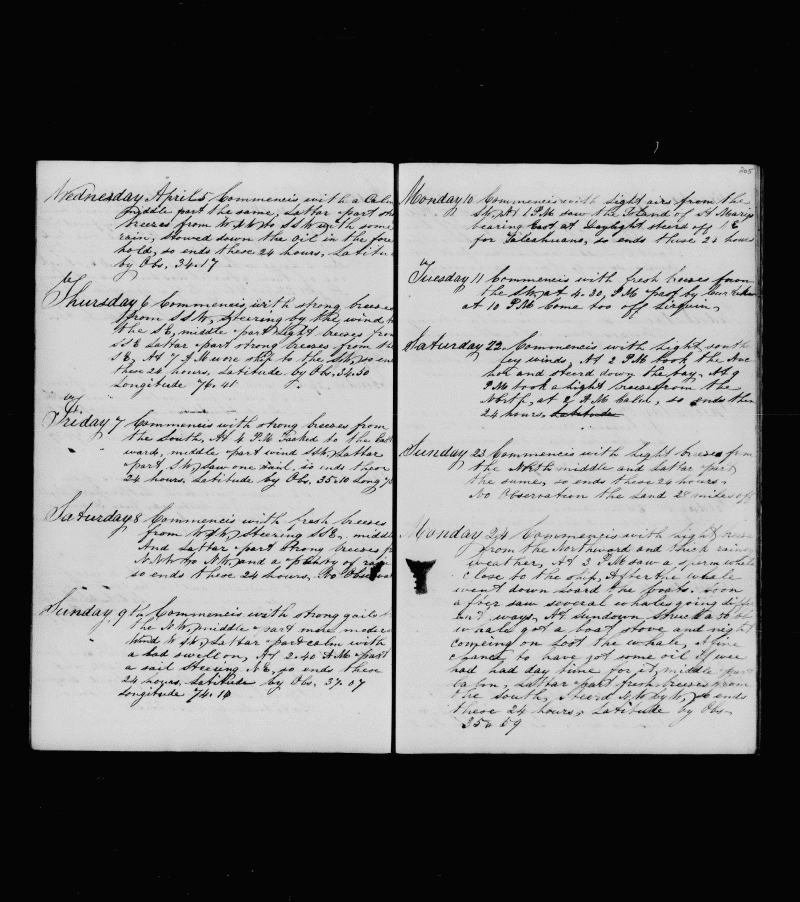 Wednesday April 5 Commencis with a Calm
middle part the same, Lattar part
breezes from to SSW with some
rain, Stowed down the Oil in the fore
hold, so ends these 24 hours, Latitude
by Obs. 34.17
Thursday 6 Commencis with strong breezes
from SSW, Steering by the wind to
the SE, middle part light breeses from
SSE Lattar part strong breeses from the
SE, At 7 A M wore ship to the SW, so ends
these 24 hours, Latitude by Obs. 34.50
Longitude 76.41
Friday 7 Commencis with strong breezes from
the South, At 4 P M Tacked to the East
ward, middle part wind SSW, Lattar
part, SW, saw one sail, so ends these
24 hours, Latitude by Obs. 35.10 Long 75
Saturday 8 Commencis with fresh breeses
from WSW, Steering SSE, middle
And Lattar part strong breeses
NNW to NW, and a plenty of rain
so ends these 24 hours, No Obs
Sunday 9th Commencis with strong gails
the NW, middle part more moderate
Wind WSW, Lattar part calm with
a bad swell on, At 2.40 A M past
a sail Steering NE, so ends these
24 hours, Latitude by Obs. 37.07
Longitude 74.14
205
Monday 10 Commencis with light airs from the
SW, At 1 P M saw the Island of St Marys
bearing East at Daylight steerd off
for Talcahuana, so ends these 24 hours
Tuesday 11 Commencis with fresh breeses from
the SW, at 4.30, P M past by
at 10 P M Come too off Lirquin,
Saturday 22 Commencis with light south
ley winds, At 2 P M took the Anc
hor and steerd down the bay, At 9
P M took a light breese from the
North, at 2 A M Calm, so ends these
24 hours, Latitude
Sunday 23 Commencis with light breeses from
the North middle and Lattar part
the same, so ends these 24 hours,
No Observation the Land 28 miles off
Monday 24 Commencis with light breese
from the Northword and thick rainy
weather, At 3 P M saw a sperm whale
close to the ship, After the whale
went down loard the boats. Soon
after saw several whales going diffe
rent ways, At Sundown Struck a
whale got a boat stove and night
comeing on Lost the whale, A fine
chance to have got some oil if wee
had had day time for it, middle part
Calm, Lattar part fresh breeses from
the South, Steerd NW by W, so ends
these 24 hours, Latitude by Obs
35.59